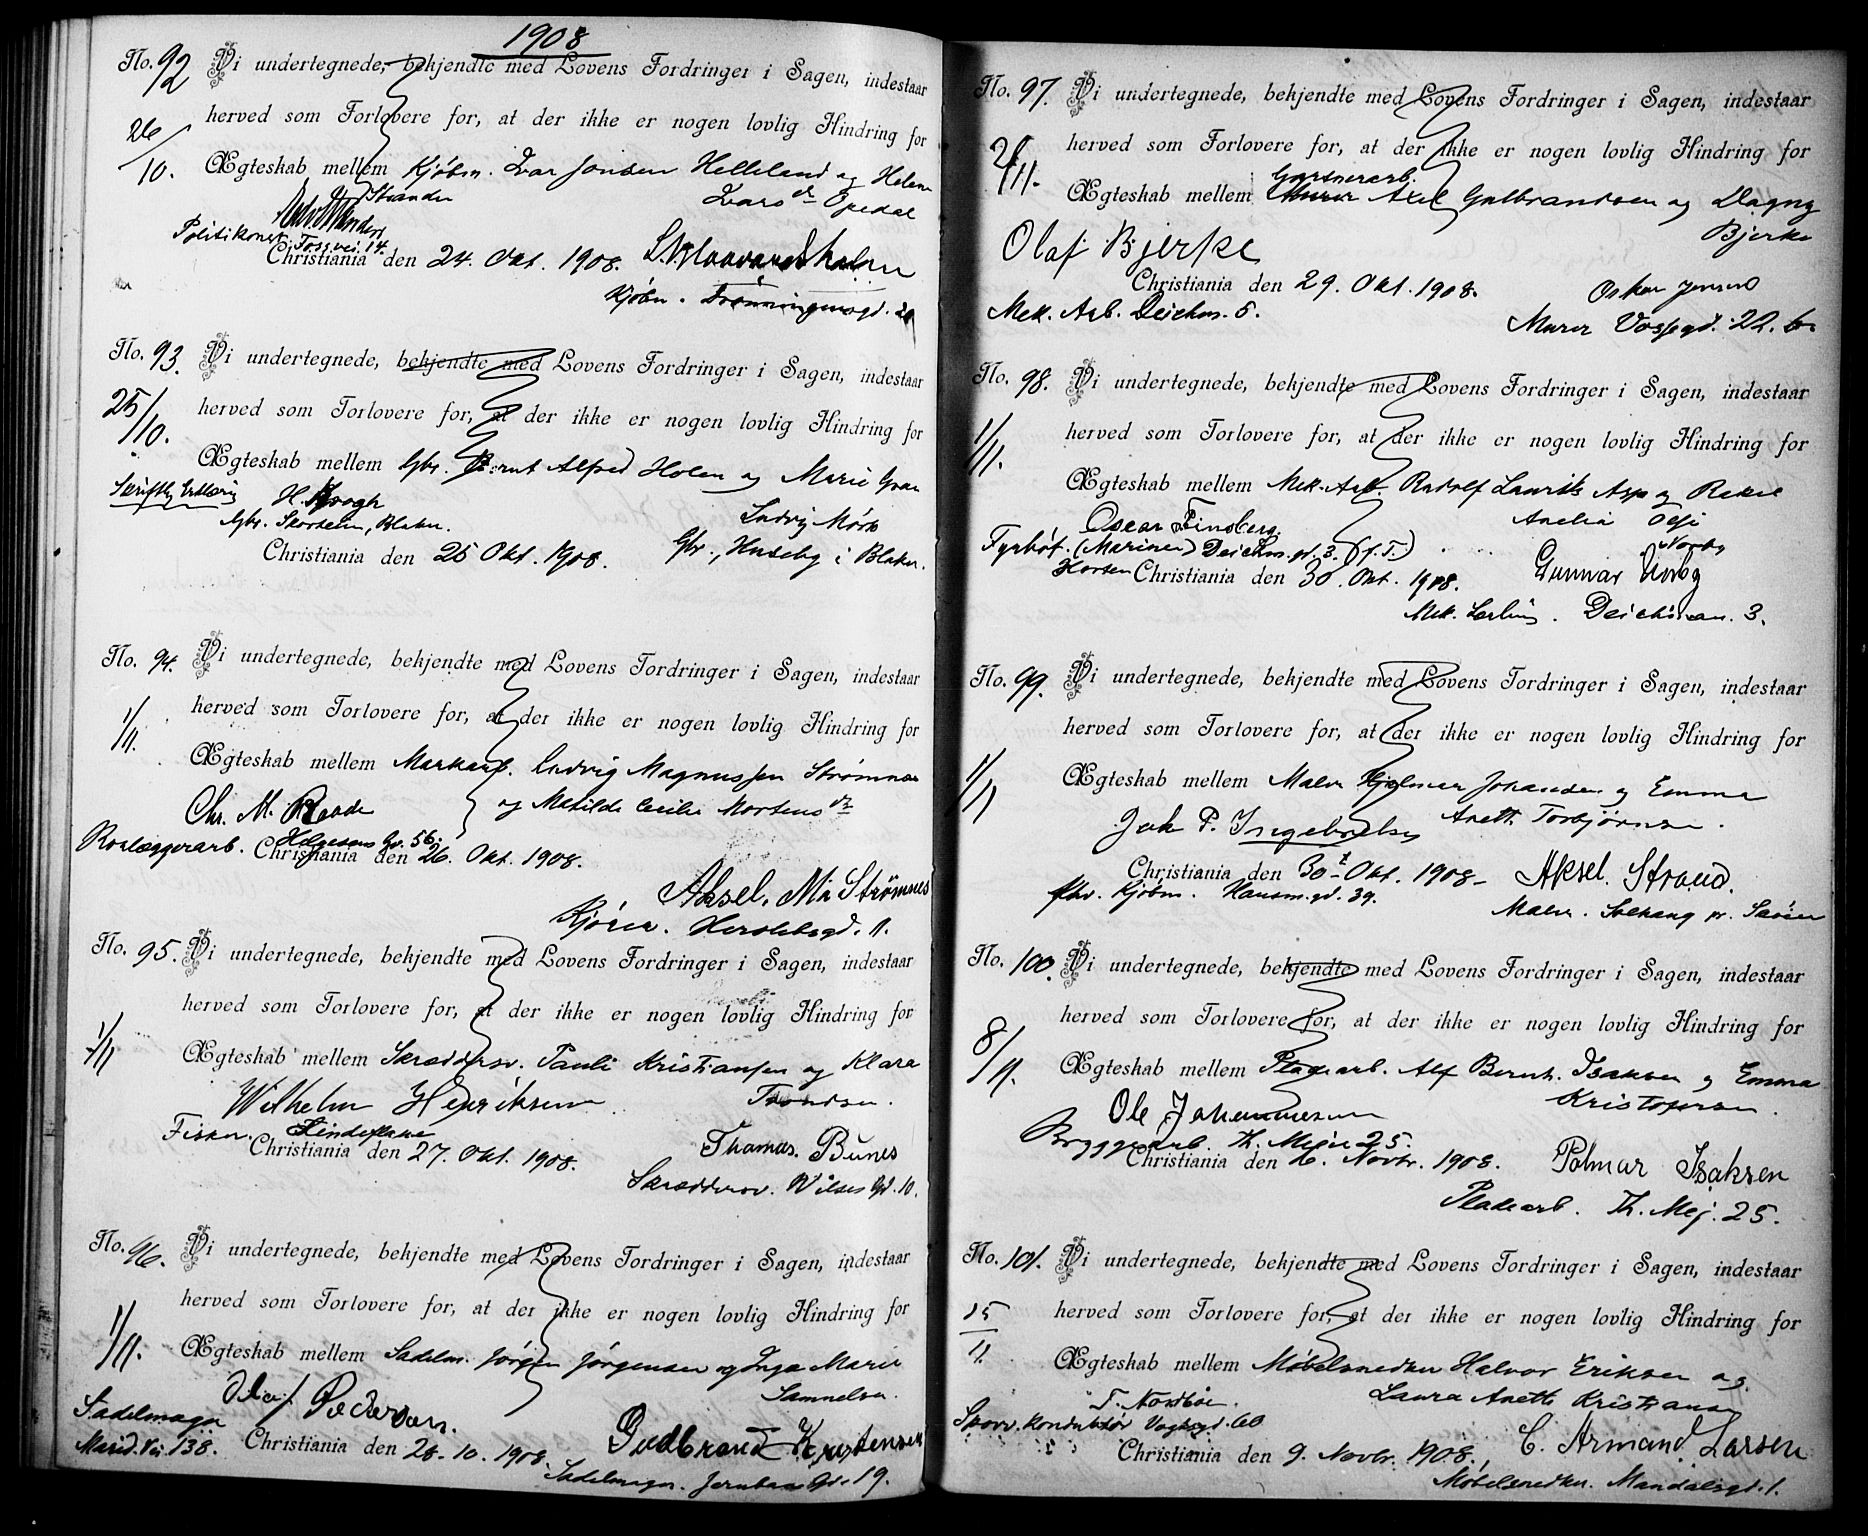 1908
No. 92 Vi undertegnede, bekjendte med Lovens Fordringer i Sagen, indestaar
herved som Forlovere for, at der ikke er nogen lovlig Hindring for
26/10. Ægteskab mellem Kjøbm. Ivar Jonsen Helleland og Helene
Lars dr Opedal
Strander
Politikonst. Tossvei. 14.
Christiania den 24. Okt. 1908.
Kjøbm. Dronningensgd. 20
No. 93. Vi undertegnede, bekjendte med Lovens Fordringer i Sagen, indestaar
herved som Forlovere for, at der ikke er nogen lovlig Hindring for
25/10. Ægteskab mellem Gbr. Bernt Alfred Holen og Marie Gran
Skriftlig Erklæring H. Krogh Ludvig Mørk
Gbr. Skorstein, Blaker. Gbr., Huseby i Blaker.
Christiania den 25 Okt. 1908.
No. 94. Vi undertegnede, bekjendte med Lovens Fordringer i Sagen, indestaar
herved som Forlovere for, at der ikke er nogen lovlig Hindring for
1/11. Ægteskab mellem Murkarl. Ludvig Magnussen Strømnæs
Chr. M. Raade og Matilde Cecilie Mortens dr
Rørlæggerarb. Helgesens Gd. 56.
Christiania den 26. Okt. 1908.
Aksel. M. Strømnes
Kjører. Herslebsgd. 11.
No. 95. Vi undertegnede, bekjendte med Lovens Fordringer i Sagen, indestaar
herved som Forlovere for, at der ikke er nogen lovlig Hindring for
1/11 Ægteskab mellem Skræddersv. Pauli Kristiansen og Klara
Wilhelm Henriksen Trondsen.
Fisker. Lindøflaket
Christiania den 27. Okt. 1908. Thomas. Bunes
Skræddersv. Wilses Gd. 10.
No. 96. Vi undertegnede, bekjendte med Lovens Fordringer i Sagen, indestaar
herved som Forlovere for, at der ikke er nogen lovlig Hindring for
1/11. Ægteskab mellem Sadelm. Jørgen Jørgensen og Inga Marie
Samuelsen.
Olaf Pedersen.
Sadelmager
Marid. Vei 138. Christiania den 28. 10. 1908. Gudbrand Kristensen
Sadelmager. Jernbane Gd. 19.
No. 97. Vi undertegnede, bekjendte med Lovens Fordringer i Sagen, indestaar
herved som Forlovere for, at der ikke er nogen lovlig Hindring for
Gartnerarb.
Ægteskab mellem Murer Axel Gulbrandsen og Dagny
Bjerke
Olaf Bjerke
Christiania den 29. Okt. 1908. Oskar Jensen
Mek. Arb. Deichm. 5. Murer Vossegd. 22. b.
No. 98. Vi undertegnede, bekjendte med Lovens Fordringer i Sagen, indestaar
herved som Forlovere for, at der ikke er nogen lovlig Hindring for
1/11. Ægteskab mellem Mek. Arb. Rudolf Laurits Asp og Rakel
Oscar Finsberg Anelia
Norby
Fyrbøt. (Marinen) Deichm. gd. 3. (f. T.)
Horten Christiania den 30. Okt. 1908. Gunnar Norby
Mek. Lærling. Deichman. 3.
No. 99. Vi undertegnede, bekjendte med Lovens Fordringer i Sagen, indestaar
herved som Forlovere for, at der ikke er nogen lovlig Hindring for
1/11 Ægteskab mellem Maler Hjalmar Johansen og Emma
Anette Torbjørnsen.
Joh P. Ingebretsen
Christiania den 30 t Okt. 1908 Aksel. Strand.
fhv. Kjøbm. Hausm. gd. 39.
Maler. Solhaug pr. Sæter
No. 100. Vi undertegnede, bekjendte med Lovens Fordringer i Sagen, indestaar
herved som Forlovere for, at der ikke er nogen lovlig Hindring for
8/11. Ægteskab mellem Pladearb. Alf Bernh. Isaksen og Emma
Kristofersen.
Ole Johannesen
Bryggearb. Th. Mejer 25.
Christiania den 6. Novbr. 1908. Palmar Isaksen
Pladearb. Th. Mej. 25.
No. 101. Vi undertegnede, bekjendte med Lovens Fordringer i Sagen, indestaar
herved som Forlovere for, at der ikke er nogen lovlig Hindring for
15/11. Ægteskab mellem Møbelsnedker Halvor Eriksen og
Laura Anette Kristiansen
T. Nordbøe.
Sporv. Konduktør Vogtsgd. 60
Christiania den 9. Novbr. 1908. C. Armand Larsen
Møbelsnedker. Mandalsgd. 1.